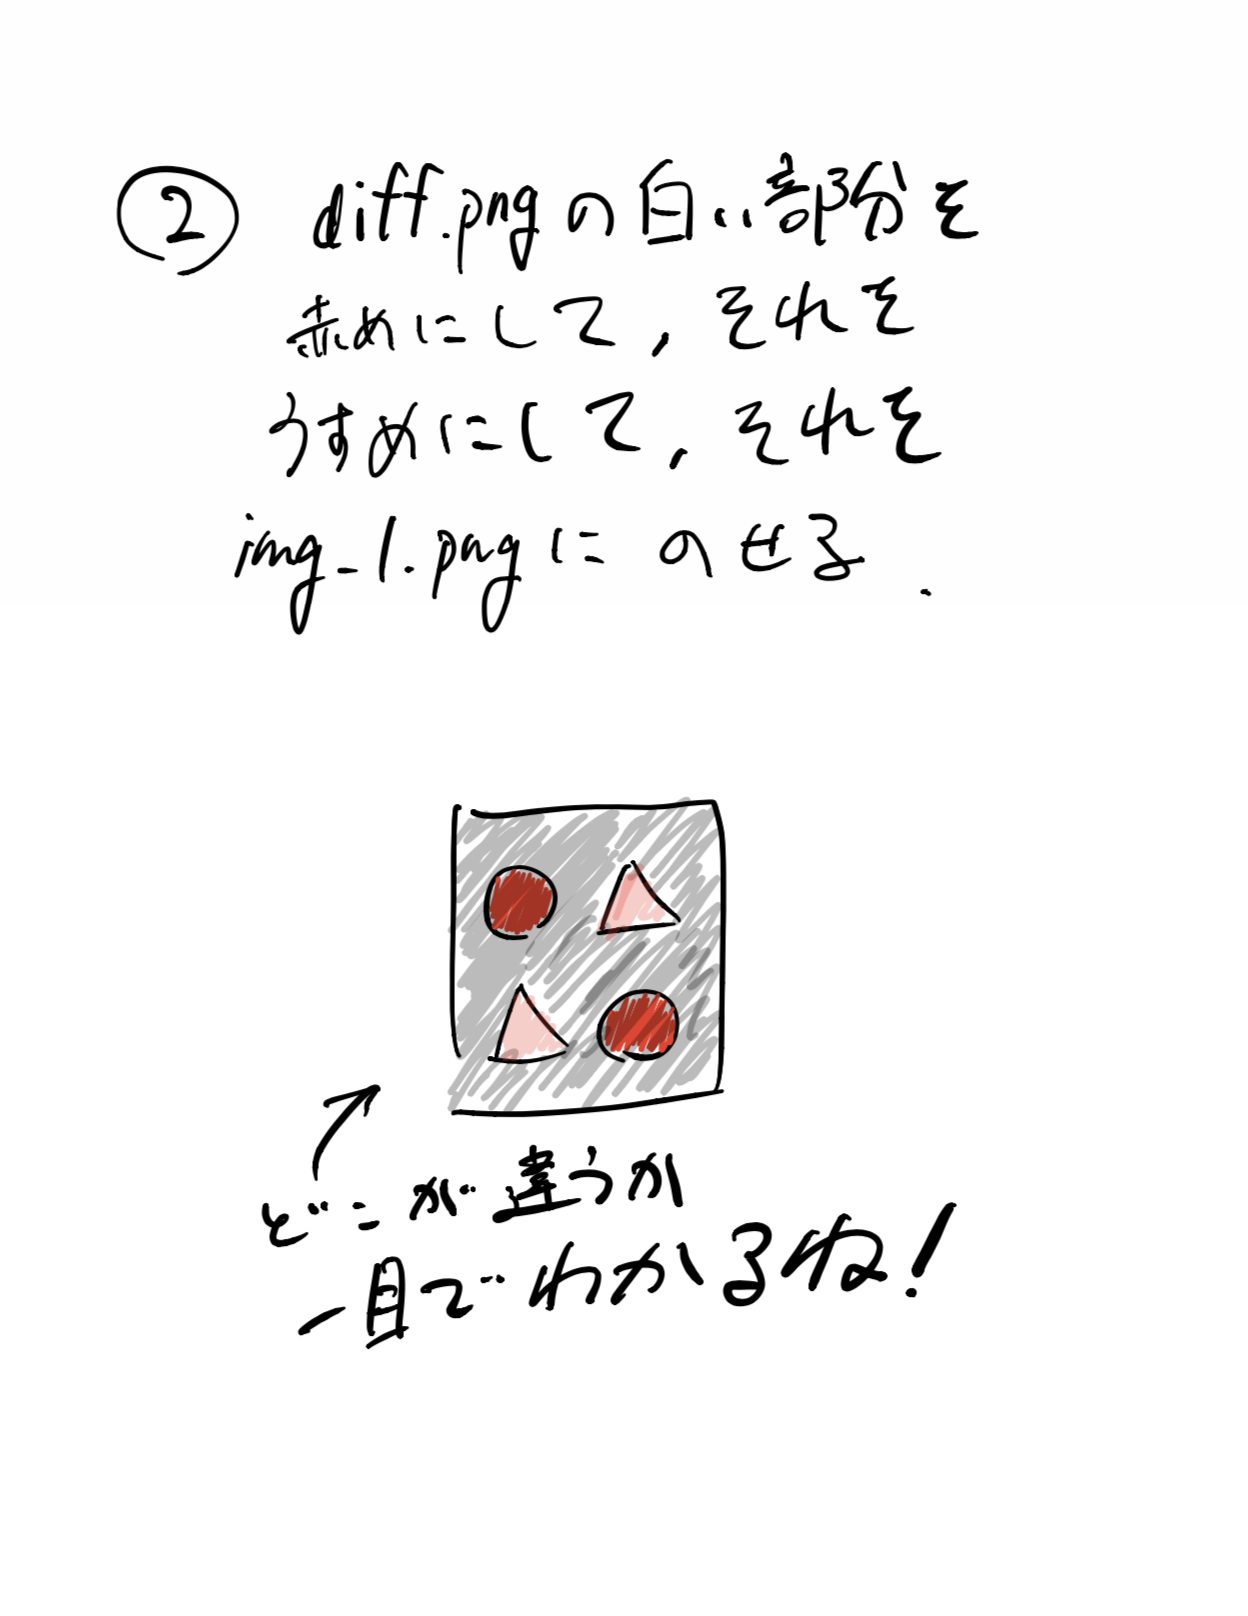 ② diff.pngの白い部分を
赤めにして,それを
うすめにして,それを
img_1.pngにのせる.
どこが違うか
一目でわかるね!